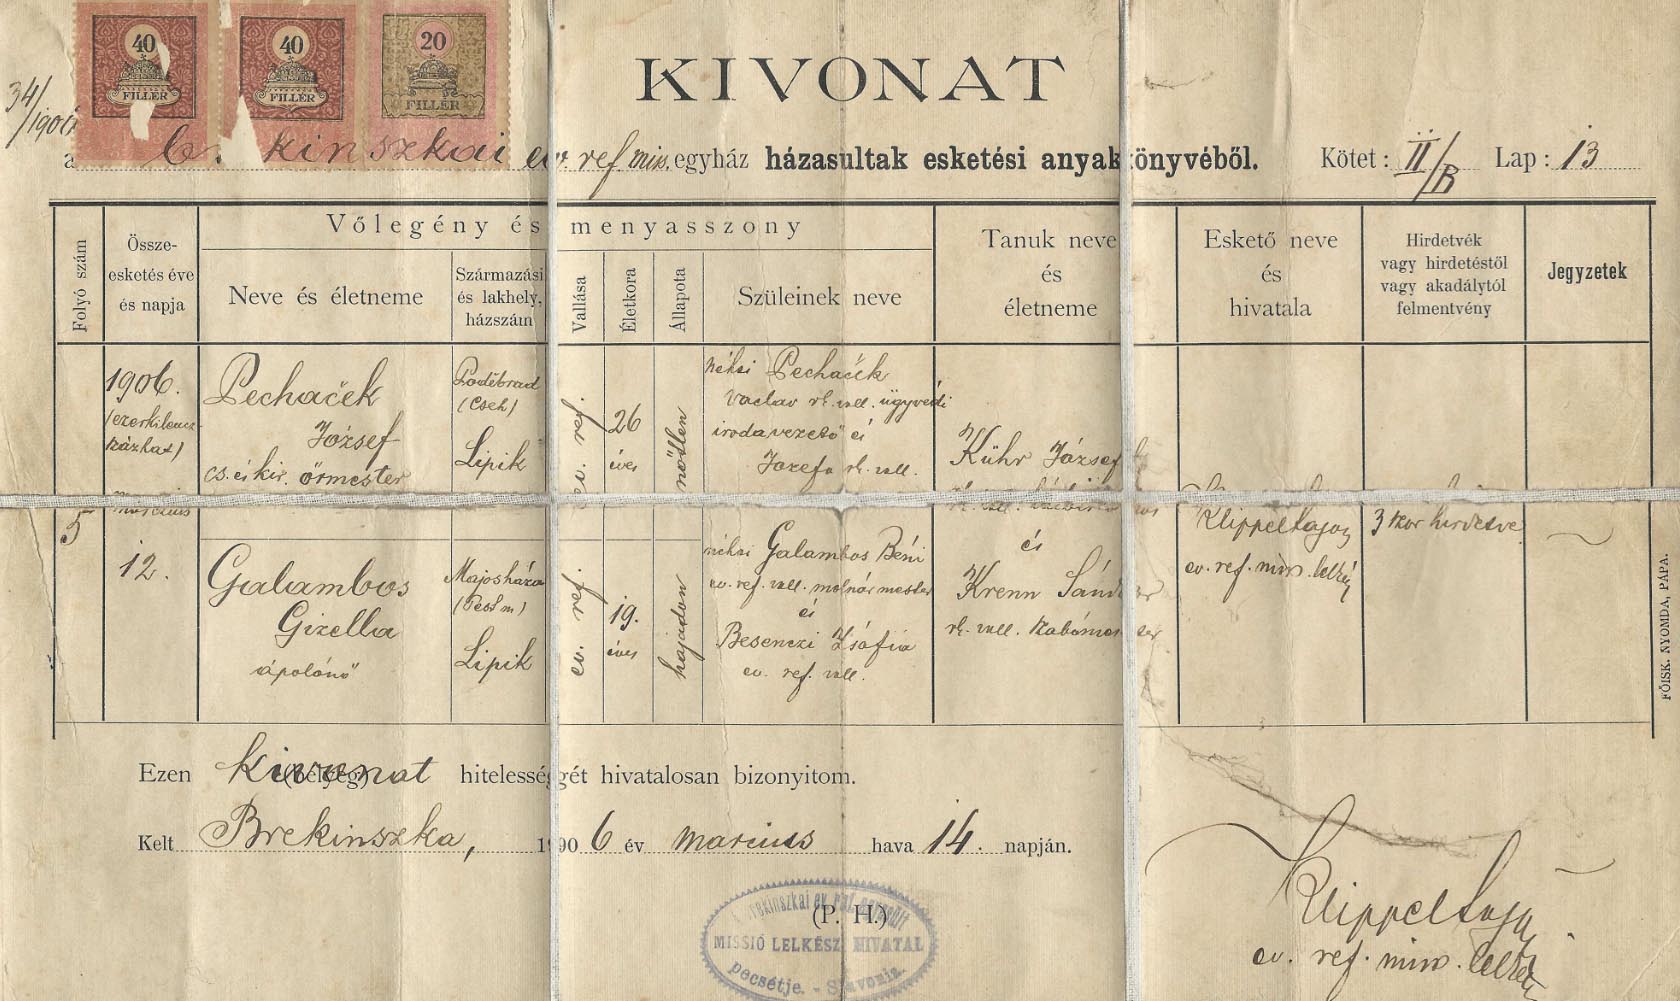 40
FILLÉR
40
FILLÉR
20
FILLÉR
34/1906
KIVONAT
a kinszkai ev. ref. mis. egyház házasultak esketési anyakönyvéből. Kötet: II/B Lap: 13
Folyó szám
Össze-
esketés éve
és napja
Vőlegény és menyasszony
Neve és életneme
Származási
és lakhely,
házszám
Vallása
Életkora
Állapota
Szüleinek neve
Tanuk neve
és
életneme
Eskető neve
és
hivatala
Hirdetvék
vagy hirdetéstől
vagy akadálytól
felmentvény
Jegyzetek
5
1906.
(ezerkilencz-
százhat)
március
12.
Pechaček
József
cs. és kir. őrmester
Poděbrad
(Cseh)
Lipik
ev. ref.
26
éves
nőtlen
néhai Pechaček
Vaclav rk. vall. ügyvédi
irodavezető és
Jozefa rk. vall.
Galambos
Gizella
ápolónő
Majosháza
(Pest m)
Lipik
ev. ref.
19.
éves
hajadon
néhai Galambos Béni
ev. ref. vall. molnármester
és
Besenczi Zsófia
ev. ref. vall.
Kühr József
rk. vall.
és
Krenn Sándor
rk. vall. szabómester
Klippel Lajos
ev. ref. miss. lelkész
3 szor hirdetve
Ezen kivonat (bélyeg) hitelességét hivatalosan bizonyitom.
Kelt Brekinszka, 1906 év marcius hava 14. napján.
(P. H.)
brekinszkai ev. ref.
MISSIÓ LELKÉSZI HIVATAL
pecsétje. - Slavonia.
Klippel Lajos
ev. ref. miss. lelkész
FŐISK. NYOMDA, PÁPA.